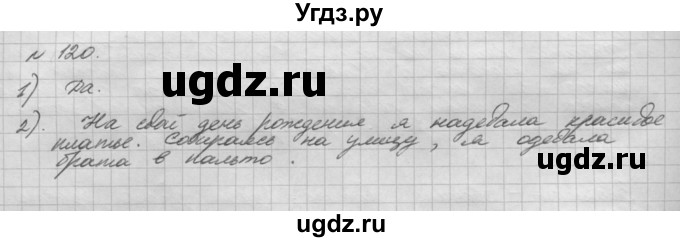 Угдз.ру
№ 120.
1) Да.
ugdz.ru
2). На свой день рождения я надевала красивое
платье. Собираясь на улицу, я одевала
брата в пальто.
ugdz.ru
ugdz.ru